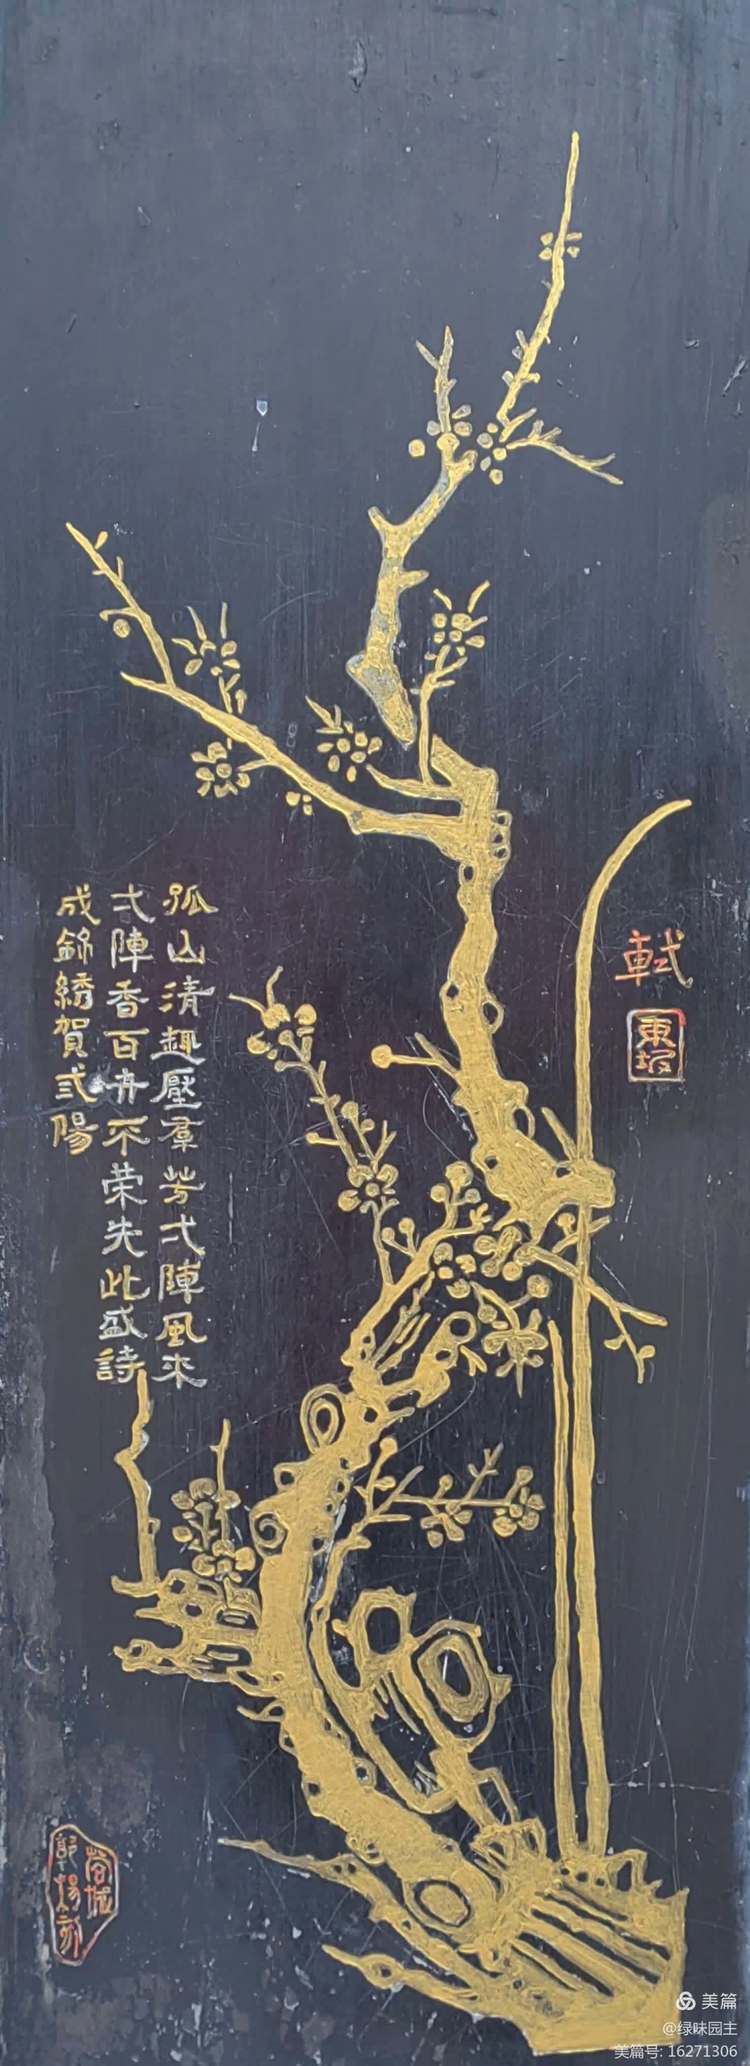 軾
東坡
孤山清趣壓羣芳弌陣風来
弌陣香百卉不荣先此盛詩
成錦綉賀弎陽
美篇
@绿味园主
美篇号: 16271306